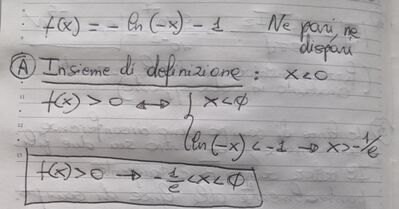 f(x) = - ln(-x) - 1 Ne pari, ne
dispari
(A) Insieme di definizione : x<0
f(x) > 0 ↔ { x<0
ln(-x) < -1 → x>-1/e
f(x) > 0 → -1/e < x < 0